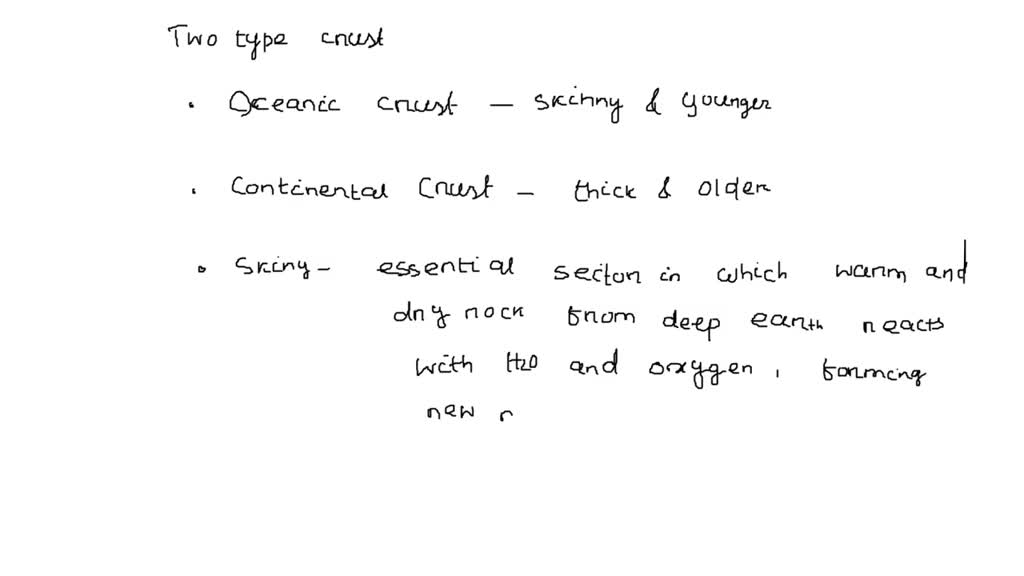 Two type crust
• Oceanic crust – skinny & younger
• Continental Crust – thick & older
• Skiny – essential sector in which warm and
dry rock from deep earth reacts
with H2O and oxygen, forming
new r